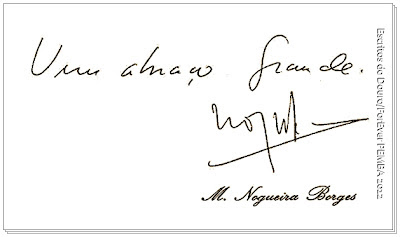 Um abraço grande.
M. Nogueira Borges
Escritos do Douro/ForEver PEMBA 2012